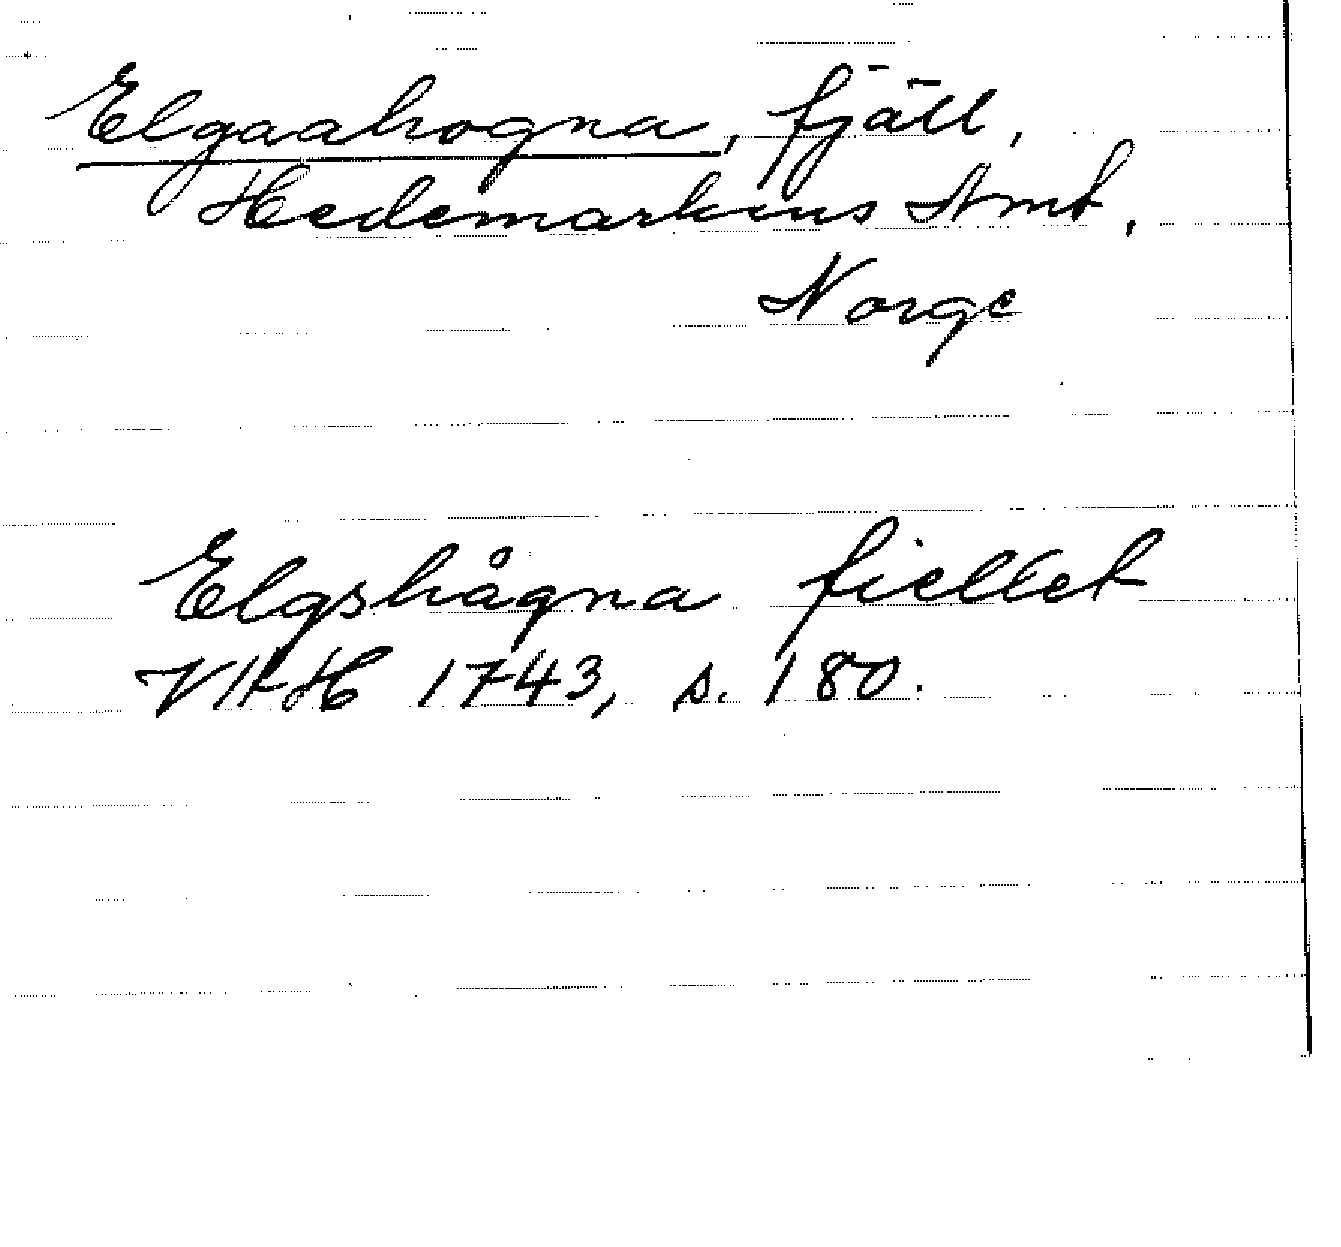 Elgaahogna, fjäll,
Hedemarkens Amt,
Norge
Elgshågna fiellet
VHH 1743, s. 180.